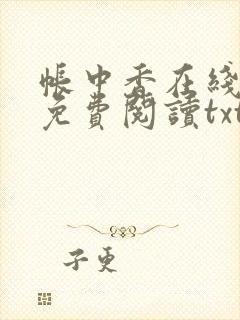 帳中香在綫
免費閱讀txt
子更